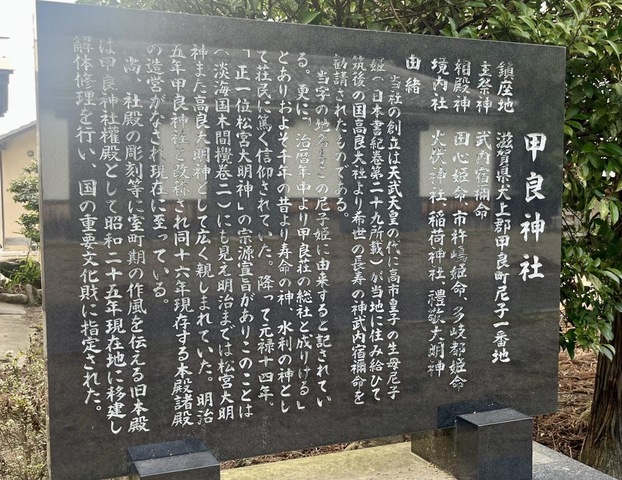 甲良神社
鎮座地　滋賀県犬上郡甲良町尼子一番地
主祭神　武内宿禰命
相殿神　田心姫命、市杵嶋姫命、多岐都姫命
境内社　火伏神社、稲荷神社、禮敬大明神
由緒
当社の創立は天武天皇の代に高市皇子の生母尼子
姫（日本書紀巻第二十九所載）が当地に住み給ひて
筑後の国高良大社より希世の長寿の神武内宿禰命を
勧請されたものである。
当字の地名もこの尼子姫に由来すると記されてい
る。更に「治暦年中より甲良荘の総社と成りける」
とありおよそ千年の昔より寿命の神、水利の神とし
て荘民に篤く信仰されていた。降って元禄十四年、
「正一位松宮大明神」の宗源宣旨がありこのことは
（淡海国木間攪巻二）にも見え明治までは松宮大明
神また高良大明神として広く親しまれていた。明治
五年甲良神社と改称され同十六年現存する本殿諸殿
の造営がなされ現在に至っている。
尚、社殿の彫刻等に室町期の作風を伝える旧本殿
は甲良神社権殿として昭和二十五年現在地に移建し
解体修理を行い、国の重要文化財に指定された。